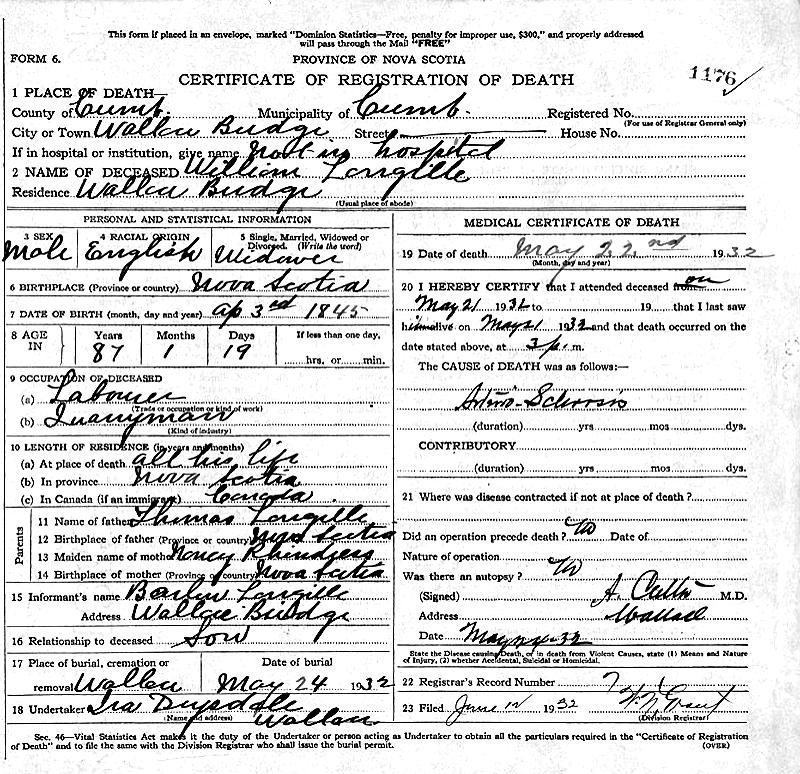 This form if placed in an envelope, marked "Dominion Statistics—Free, penalty for improper use, $300," and properly addressed
will pass through the Mail "FREE"
FORM 6.
PROVINCE OF NOVA SCOTIA
CERTIFICATE OF REGISTRATION OF DEATH
1176
1 PLACE OF DEATH
County of Cumb. Municipality of Cumb. Registered No.
(For use of Registrar General only)
City or Town Wallace Bridge Street House No.
If in hospital or institution, give name Not in hospital
2 NAME OF DECEASED William Langille
Residence Wallace Bridge
(Usual place of abode)
PERSONAL AND STATISTICAL INFORMATION
3 SEX 4 RACIAL ORIGIN 5 Single, Married, Widowed or Divorced. (Write the word)
Male English Widower
6 BIRTHPLACE (Province or country) Nova Scotia
7 DATE OF BIRTH (month, day and year) Ap 3rd 1845
8 AGE IN Years Months Days If less than one day,
87 1 19 hrs. or min.
9 OCCUPATION OF DECEASED
(a) Labourer
(Trade or occupation or kind of work)
(b) Quarryman
(Kind of industry)
10 LENGTH OF RESIDENCE (in years and months)
(a) At place of death all his life
(b) In province Nova Scotia
(c) In Canada (if an immigrant) Canada
Parents
11 Name of father Thomas Langille
12 Birthplace of father (Province or country) Nova Scotia
13 Maiden name of mother Nancy
14 Birthplace of mother (Province of country) Nova Scotia
15 Informant's name Langille
Address Wallace Bridge
16 Relationship to deceased Son
17 Place of burial, cremation or Date of burial
removal Wallace May 24 1932
18 Undertaker Ira Drysdale
(Name and address) Wallace
MEDICAL CERTIFICATE OF DEATH
19 Date of death May 22nd 1932
(Month, day and year)
20 I HEREBY CERTIFY that I attended deceased from on
May 21 1932 to 19 that I last saw
him alive on May 21 1932 and that death occurred on the
date stated above, at 3 p. m.
The CAUSE of DEATH was as follows:—
Arterio-Sclerosis
(duration) yrs mos dys.
CONTRIBUTORY
(duration) yrs mos dys.
21 Where was disease contracted if not at place of death?
Did an operation precede death? No Date of
Nature of operation
Was there an autopsy? No
(Signed) A. M.D.
Address Wallace
Date May 24-32
State the Disease causing Death, or in death from Violent Causes, state (1) Means and Nature
of Injury, (2) whether Accidental, Suicidal or Homicidal.
22 Registrar's Record Number 7
23 Filed June 12 1932
(Division Registrar)
Sec. 46—Vital Statistics Act makes it the duty of the Undertaker or person acting as Undertaker to obtain all the particulars required in the "Certificate of Registration
of Death" and to file the same with the Division Registrar who shall issue the burial permit.
(OVER)